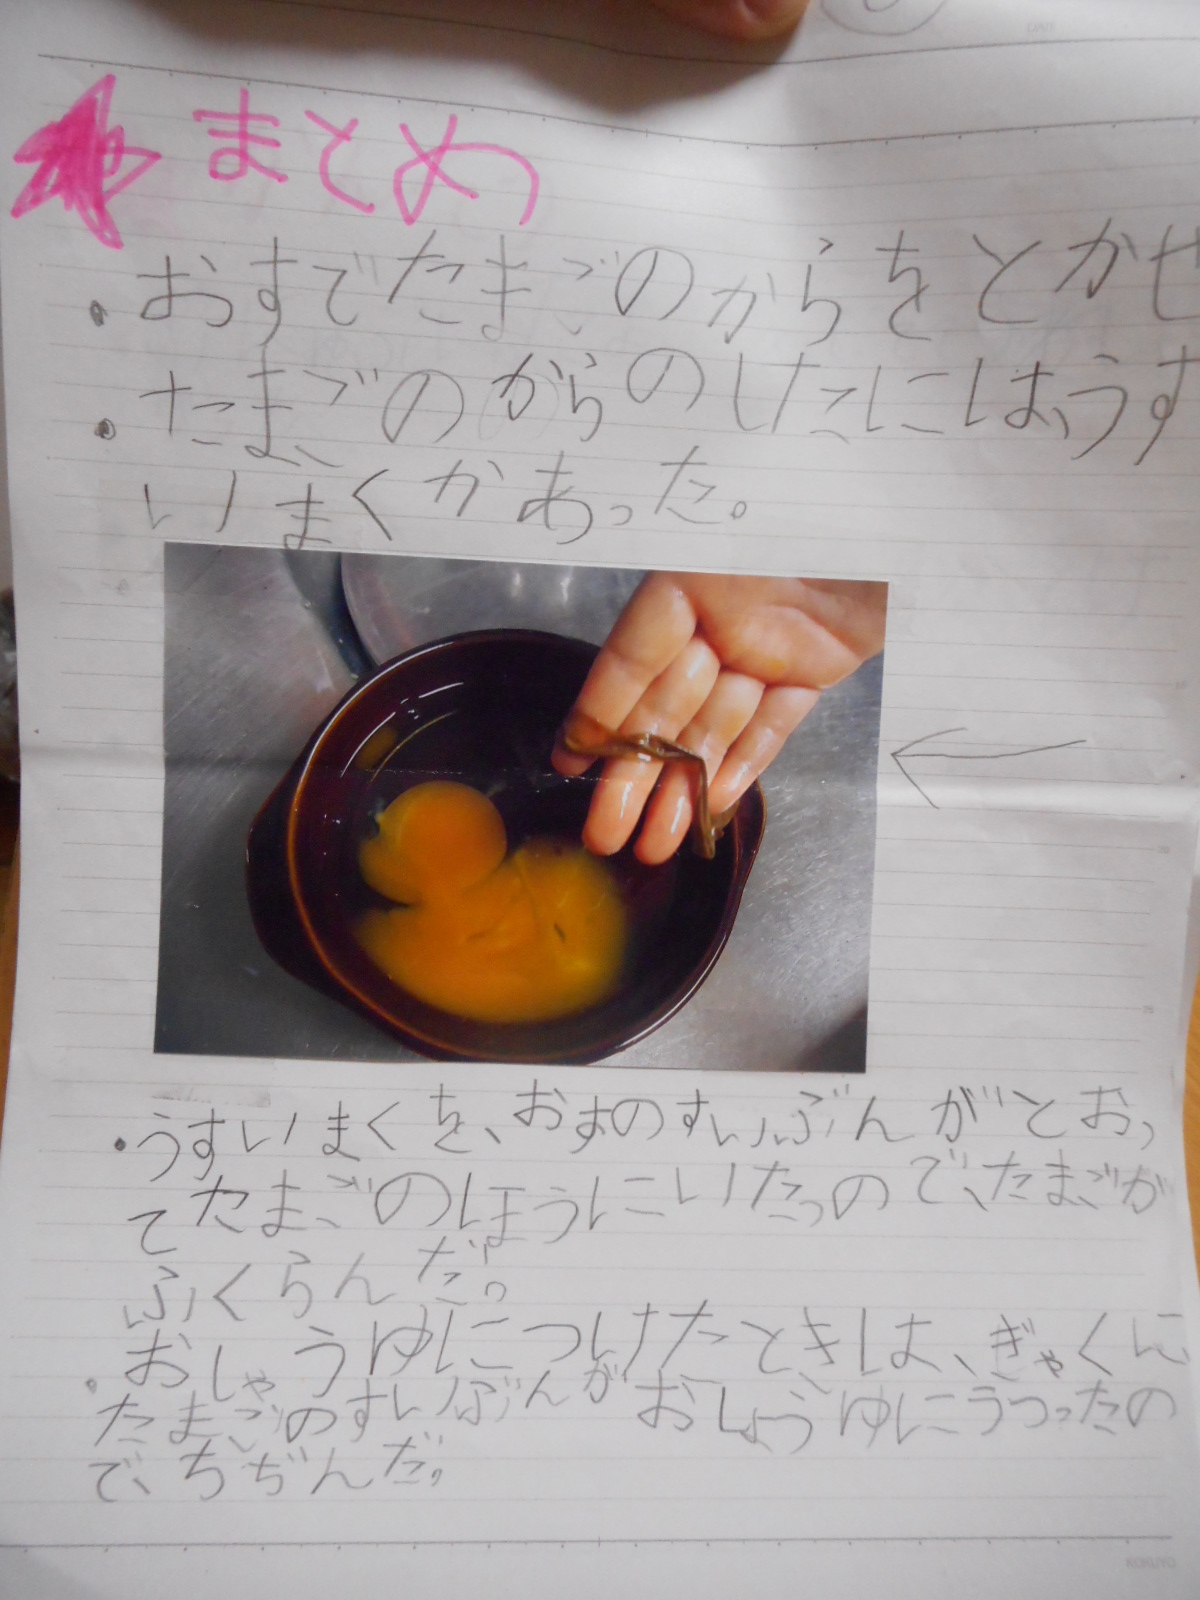 まとめ
・おすでたまごのからをとかせ
・たまごのからのしたには、うす
いまくがあった。
・うすいまくを、おすのすいぶんがとおっ
てたまごのほうにいたっので、たまごが
ふくらんだ。
・おしゃうゆにつけたときは、ぎゃくに
たまごのすいぶんがおしょうゆにうつったの
で、ちぢんだ。
KOKUYO